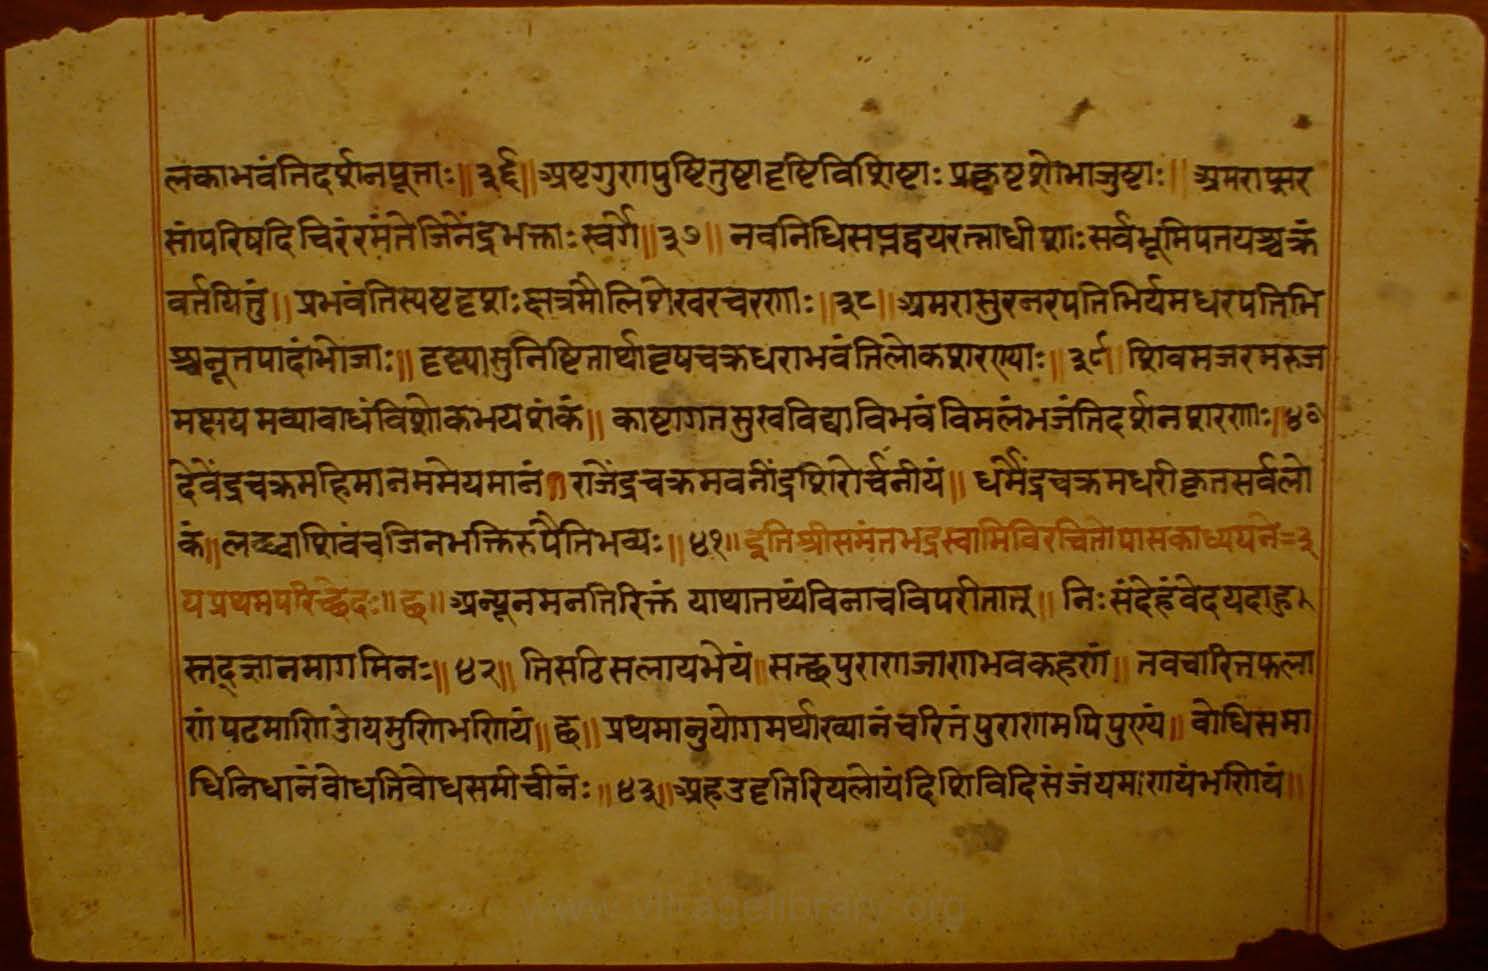 लकाभवंतिदर्शनपूताः॥३६॥अष्टगुणपुष्टितुष्टादृष्टिविशिष्टाः प्रकृष्टशोभाजुष्टाः॥ अमराप्सर
सांपरिषदि चिरंरमंतेजिनेंद्रभक्ताः स्वर्गे॥३७॥ नवनिधिसप्तद्वयरत्नाधीशाः सर्वभूमिपतयश्चक्रं
वर्तयितुं॥ प्रभवंतिस्पष्टदृशाः क्षत्रमौलिशेखरचरणाः॥३८॥ अमरासुरनरपतिभिर्यमधरपतिभि
श्चनूतपादांभोजाः॥ दृष्ट्यासुनिष्टितार्थावृषचक्रधराभवंतिलोकशरण्याः॥३९॥ शिवमजरमरुज
मक्षयमव्याबाधंविशोकभयशंकं॥ काष्टागतसुखविद्याविभवंविमलंभजंतिदर्शनशरणाः॥४०
देवेंद्रचक्रमहिमानममेयमानं॥ राजेंद्रचक्रमवनींद्रशिरोर्चनीयं॥ धर्मेंद्रचक्रमधरीकृतसर्वलो
कं॥लब्ध्वाशिवंचजिनभक्तिरुपैतिभव्यः॥४१॥ इतिश्रीसमंतभद्रस्वामिविरचितोपासकाध्ययने
यप्रथमपरिच्छेदः॥छ॥ अन्यूनमनतिरिक्तं याथातथ्यंविनाचविपरीतात्॥ निःसंदेहंवेदयदाहु
स्तद्ज्ञानमागमिनः॥४२॥ तिसठिसलायभेयं॥सन्छपुराणजाणभवकहणं॥ नवचारित्तफला
णं पढमाणिउोयमुणिभणियं॥छ॥ प्रथमानुयोगमर्थाख्यानं चरितंपुराणमपिपुण्यं॥ बोधिसमा
धिनिधानंबोधतिबोधसमीचीनंः॥४३॥अहउदृतिरियलोयंदिशिविदिसंजंयमाणयंभणियं॥
www.vitragelibrary.org